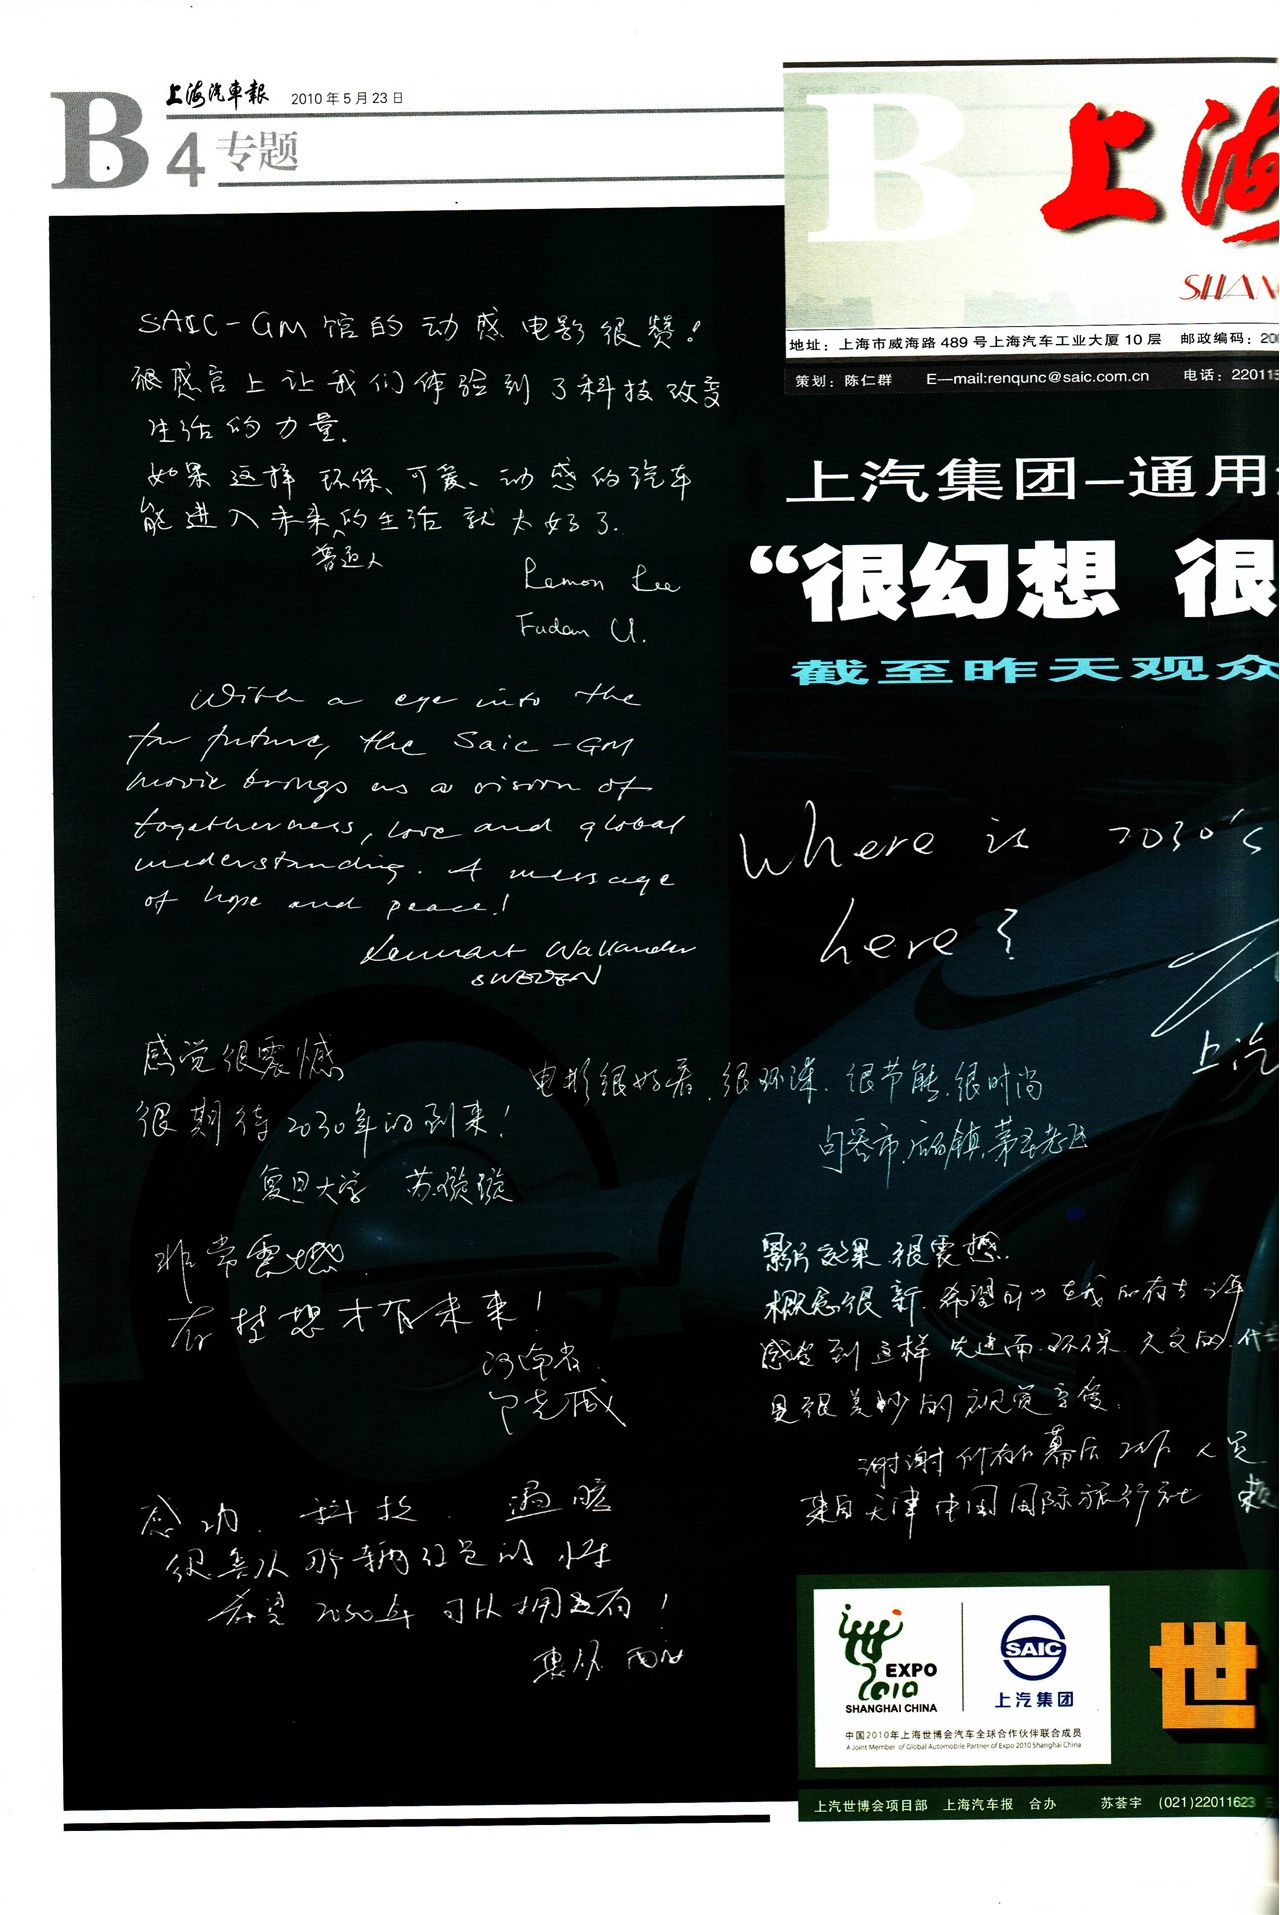 B
4
上海汽車報
2010年5月23日
专题
SAIC-GM馆的动感电影很赞!
很感官上让我们体验到了科技改变
生活的力量.
如果这样环保、可爱、动感的汽车
能进入未来的生活就太好了.
普通人
Lemon Lee
Fudan U.
With a eye into the
far future, the Saic-GM
movie brings us a vision of
togetherness, love and global
understanding. A message
of hope and peace!
Lennart Wallander
SWEDEN
感觉很震憾
很期待2030年的到来!
复旦大学 苏
非常震憾.
有梦想才有未来!
河南省.
感动. 科技. 温暖
很喜欢那辆红色的小车
希望2030年可以拥有!
B
上海
SHAN
地址：上海市威海路489号上海汽车工业大厦10层 邮政编码：20
策划：陈仁群 E—mail:renqunc@saic.com.cn 电话：22011
上汽集团-通用
“很幻想 很
截至昨天观众
Where is 2030's
here?
上汽
电影很好看.很环保.很节能.很时尚
句容市.后白镇.
影片效果很震撼.
概念很新.希望可以在我
感受到这样先进而环保.
是很美妙的视觉享受.
谢谢所有的幕后工作人员
来自天津中国国际旅行社
EXPO
2010
SHANGHAI CHINA
SAIC
上汽集团
中国2010年上海世博会汽车全球合作伙伴联合成员
A Joint Member of Global Automobile Partner of Expo 2010 Shanghai China
世
上汽世博会项目部 上海汽车报 合办 苏荟宇 (021)22011623